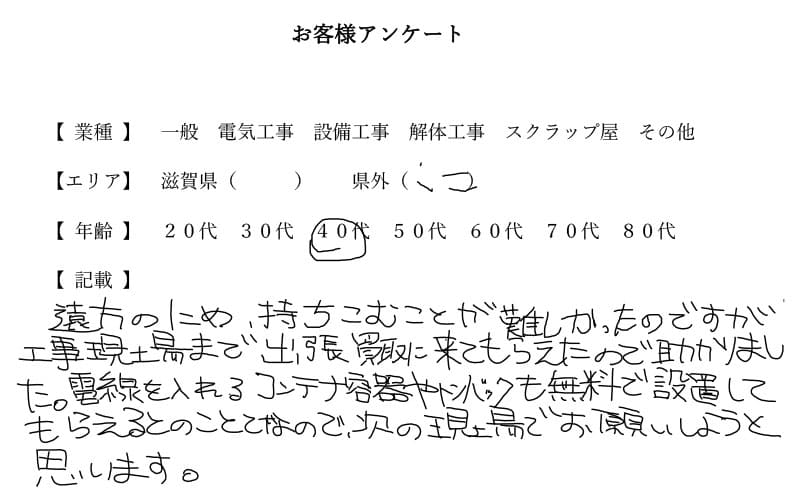 お客様アンケート
【 業種 】 一般 電気工事 設備工事 解体工事 スクラップ屋 その他
【エリア】 滋賀県（ ） 県外（
【 年齢 】 ２０代 ３０代 ４０代 ５０代 ６０代 ７０代 ８０代
【 記載 】
遠方のため、持ちこむことが難しかったのですが
工事現場まで出張買取に来てもらえたので助かりまし
た。電線を入れるコンテナ容器やトンパックも無料で設置して
もらえるとのことなので、次の現場でお願いしようと
思います。